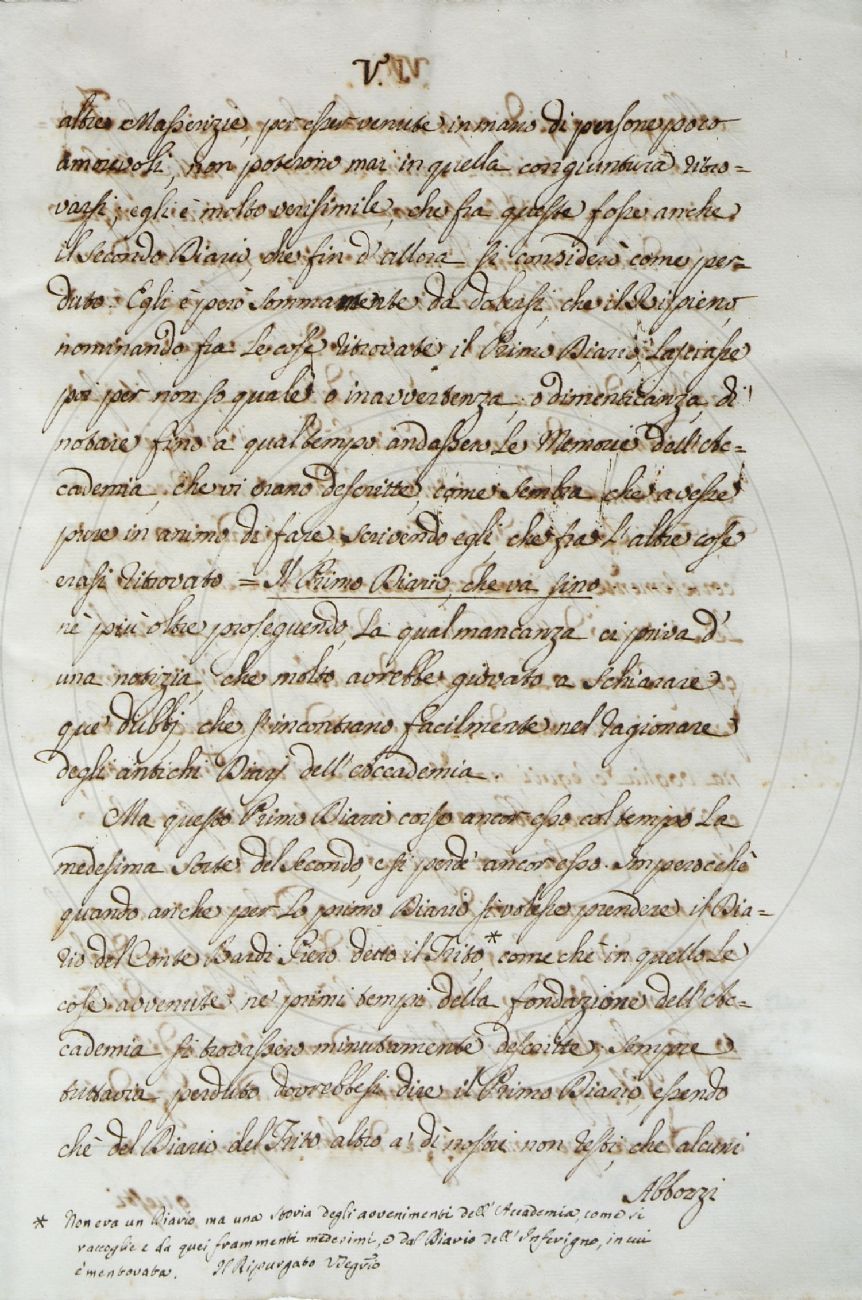 V.
altre Masserizie, per esser venute in mano di persone poco
amorevoli, non poterono mai in quella congiuntura ritro=
varsi; egli è molto verisimile, che fra queste fosse anche
il Secondo Diario, che fin d'allora si considerò come per=
duto. Egli è però sommamente da dolersi, che il Ripieno,
nominando fra le cose ritrovate il Primo Diario, lasciasse
poi per non so quale o inavvertenza, o dimenticanza, di
notare fino a qual tempo andassero le Memorie dell'Ac=
cademia, che vi erano descritte, come sembra che avesse
pure in animo di fare, scrivendo egli, che fra l'altre cose
erasi ritrovato = Il Primo Diario, che va sino
nè più oltre proseguendo. La qual mancanza ci priva d'
una notizia, che molto avrebbe giovato a schiarare
que' dubbj, che s'incontrano facilmente nel ragionare
degli antichi Diarj dell'Accademia.
Ma questo Primo Diario corse ancor esso col tempo la
medesima sorte del Secondo, e si perdè ancor esso. Imperocchè
quando anche per lo primo Diario si volesse prendere il Dia=
rio del Conte Bardi Piero detto il Trito,* come chè in quello le
cose avvenute ne' primi tempi della fondazione dell'Ac=
cademia si trovassero minutamente descritte, sempre
tuttavia perduto dovrebbesi dire il Primo Diario, essendo
chè del Diario del Trito altro a' dì nostri non resti, che alcuni
Abbozzi
* Non era un Diario, ma una Storia degli avvenimenti dell'Accademia, come si
raccoglie e da quei frammenti medesimi, e dal Diario dell'Inferigno, in cui
è mentovata. Il Ripurgato